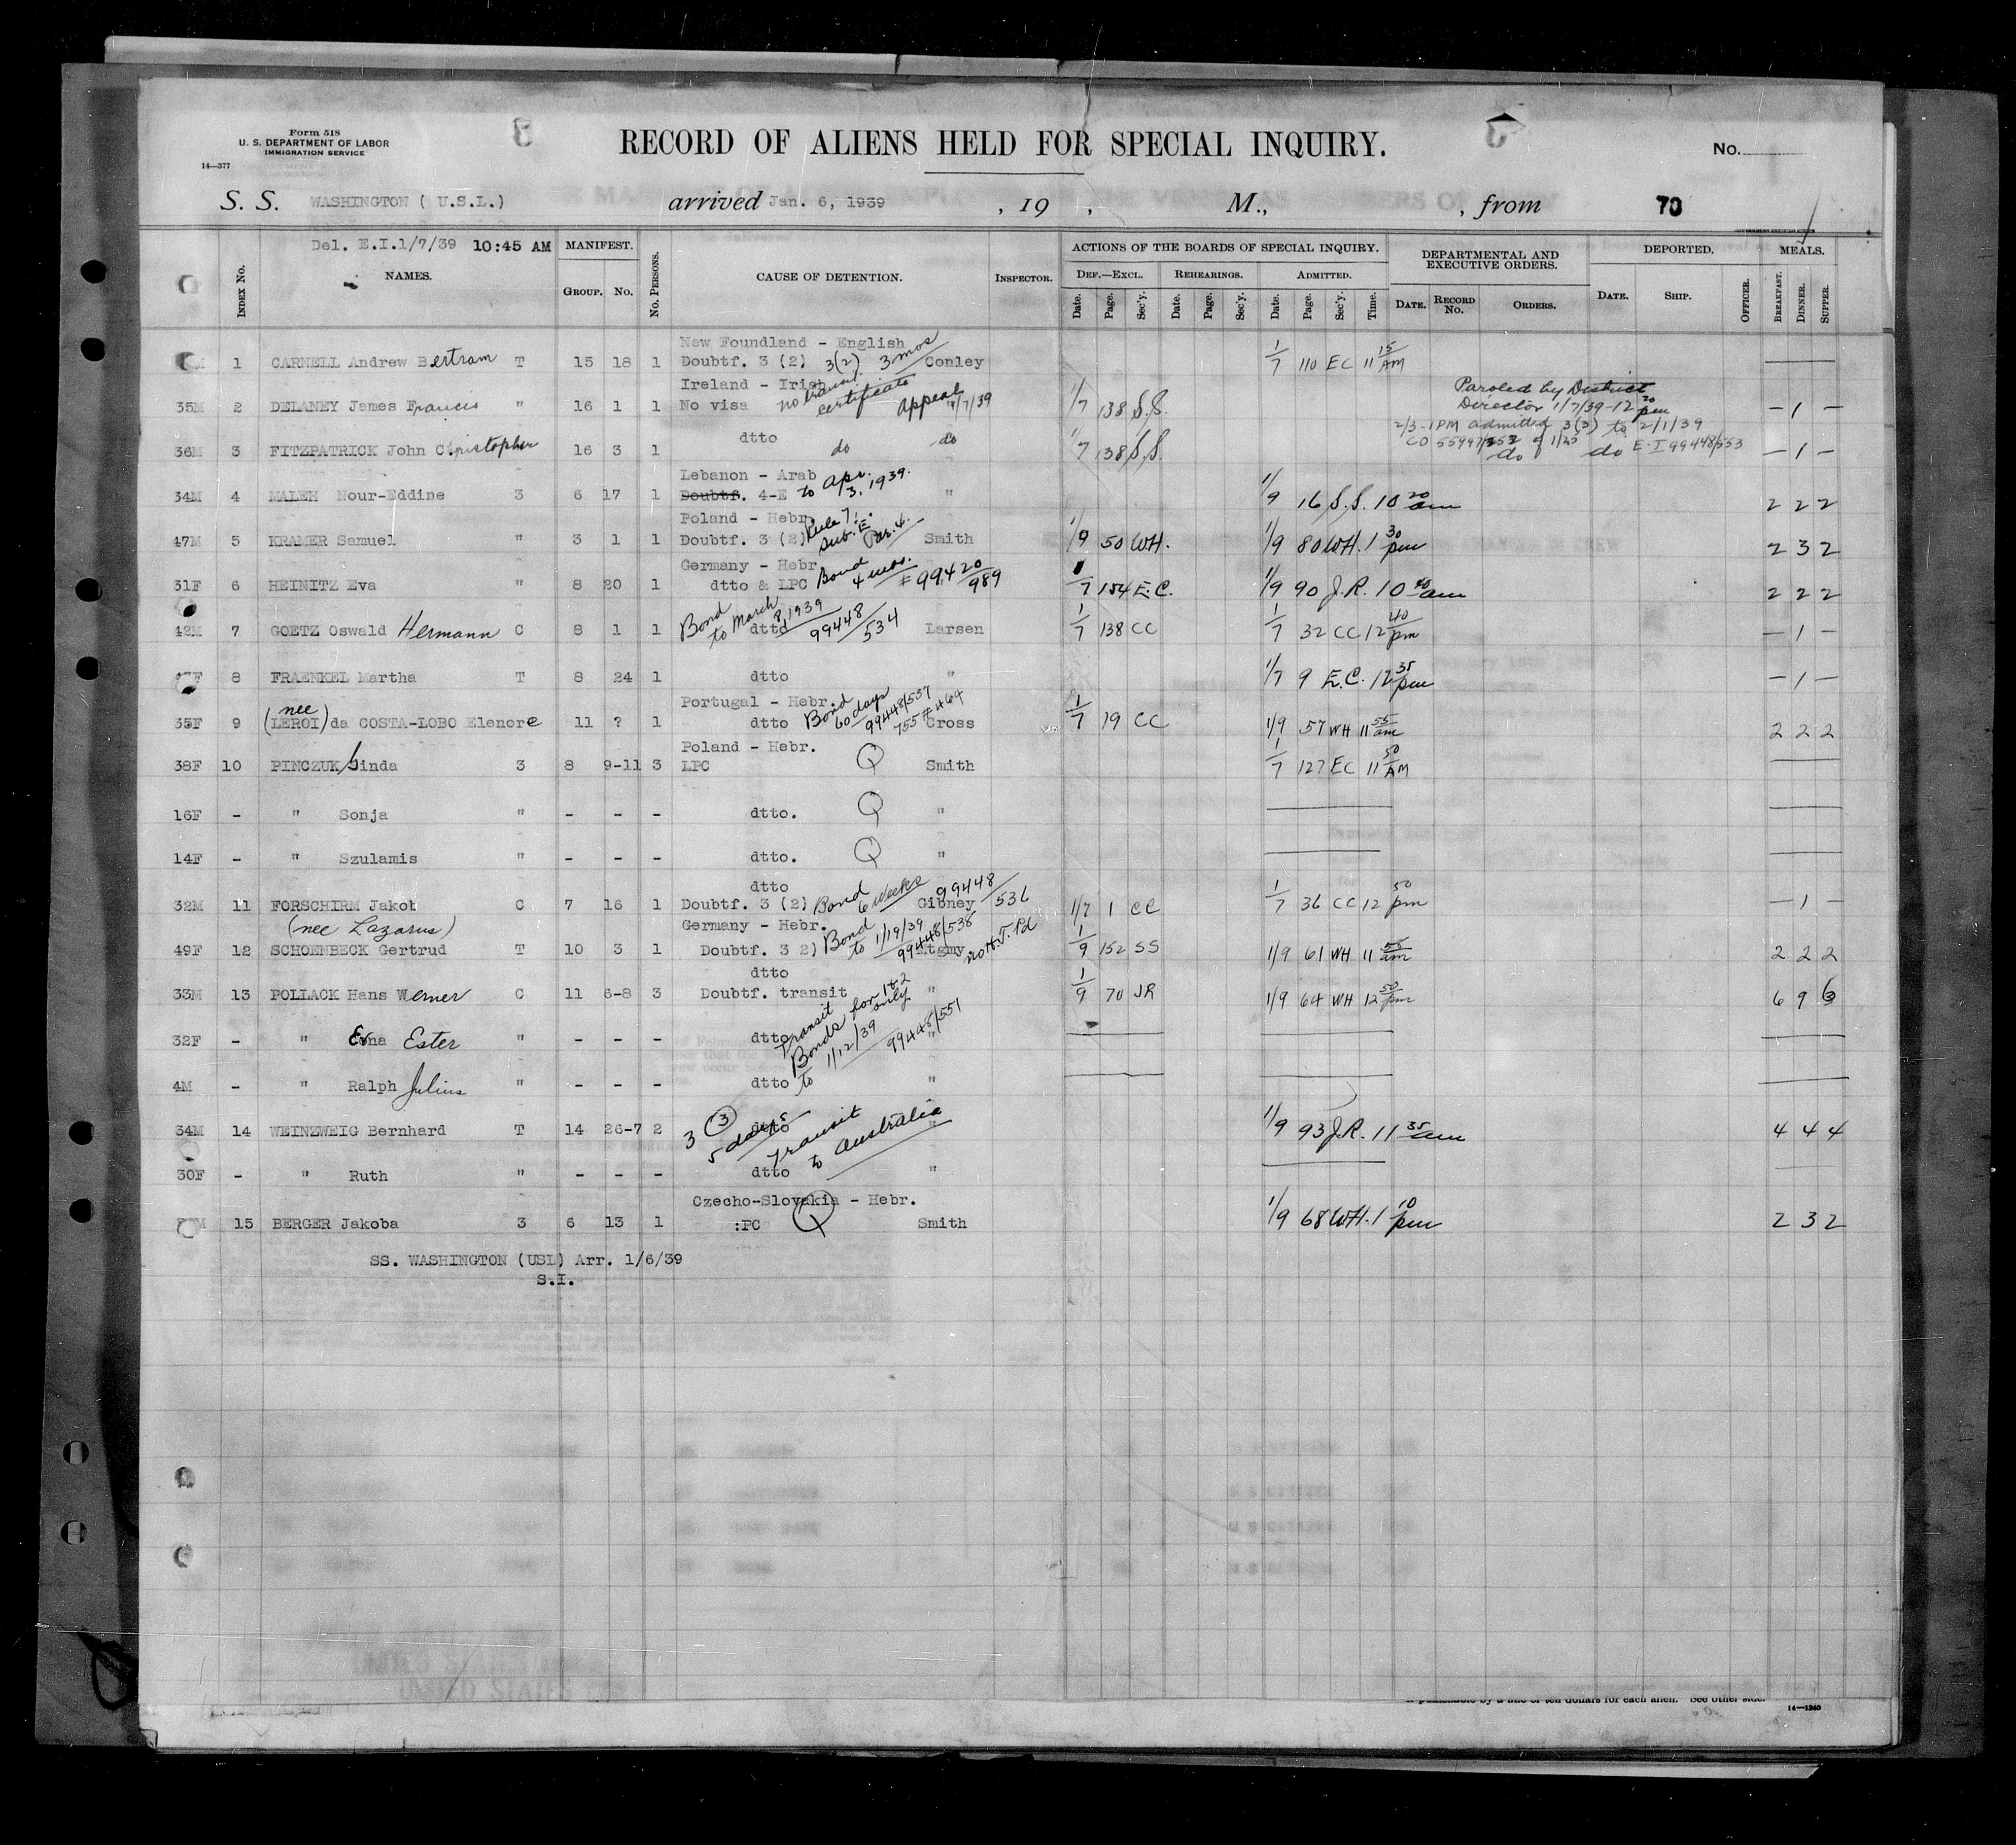 Form 518
U. S. DEPARTMENT OF LABOR
IMMIGRATION SERVICE
14—377
RECORD OF ALIENS HELD FOR SPECIAL INQUIRY.
No.
S. S. WASHINGTON ( U.S.L.) arrived Jan. 6, 1939 , 19 , M., , from 70
Del. E.I.1/7/39 10:45 AM
INDEX No. NAMES. MANIFEST. GROUP. No. No. PERSONS. CAUSE OF DETENTION. INSPECTOR. ACTIONS OF THE BOARDS OF SPECIAL INQUIRY. DEPARTMENTAL AND EXECUTIVE ORDERS. DEPORTED. MEALS.
DEF.—EXCL. REHEARINGS. ADMITTED.
Date. Page. Sec'y. Date. Page. Sec'y. Date. Page. Sec'y. Time. DATE. RECORD No. ORDERS. DATE. SHIP. OFFICER. BREAKFAST. DINNER. SUPPER.
New Foundland - English
1 CARNELL Andrew Bertram T 15 18 1 Doubtf. 3 (2) 3(2) 3 mos Conley 1/7 110 EC 11 15 AM
Ireland - Irish
35M 2 DELANEY James Francis " 16 1 1 No visa no transit certificate Appeal 1/7/39 " 1/7 138 S.S. Paroled by District Director 1/7/39-12 20 pm — 1 —
2/3-1PM admitted 3(3) to 2/1/39
CO 55997/252 of 1/25 E-I 99448/553
36M 3 FITZPATRICK John Christopher 16 3 1 dtto do do 1/7 138 S.S. do do — 1 —
Lebanon - Arab
34M 4 MALEH Nour-Eddine 3 6 17 1 Doubtf. 4-E to Apr. 3, 1939. " 1/9 16 S.S. 10 20 am 2 2 2
Poland - Hebr.
47M 5 KRAMER Samuel " 3 1 1 Doubtf. 3 (2) Rule 7. Sub. E. Par. 4. Smith 1/9 50 WH. 1/9 80 WH. 1 30 pm 2 3 2
Germany - Hebr
31F 6 HEINITZ Eva " 8 20 1 dtto & LPC Bond 4 mos. #99420/989 1/7 154 E.C. 1/9 90 J.R. 10 40 am 2 2 2
42M 7 GOETZ Oswald Hermann C 8 1 1 dtto Bond to March 8, 1939 99448/534 Larsen 1/7 138 CC 1/7 32 CC 12 40 pm — 1 —
8 FRAENKEL Martha T 8 24 1 dtto " 1/7 9 E.C. 12 35 pm — 1 —
Portugal - Hebr.
35F 9 (nee LEROI) da COSTA-LOBO Elenore 11 ? 1 dtto Bond 60 days 99448/537 755#464 Cross 1/7 19 CC 1/9 57 WH 11 55 am 2 2 2
Poland - Hebr.
38F 10 PINCZUK Ginda 3 8 9-11 3 LPC Q Smith 1/7 127 EC 11 50 AM
16F - " Sonja " - - - dtto. Q "
14F - " Szulamis " - - - dtto. Q "
dtto
32M 11 FORSCHIRM Jakob C 7 16 1 Doubtf. 3 (2) Bond 6 weeks 99448/536 Gibney 1/7 1 CC 1/7 36 CC 12 50 pm — 1 —
(nee Lazarus) Germany - Hebr.
49F 12 SCHOENBECK Gertrud T 10 3 1 Doubtf. 3 2) Bond to 1/19/39 99448/538 Mtgmy no H.T. Pd 1/9 152 SS 1/9 61 WH 11 55 am 2 2 2
dtto
33M 13 POLLACK Hans Werner C 11 6-8 3 Doubtf. transit " 1/9 70 JR 1/9 64 WH 12 50 pm 6 9 6
32F - " Erna Ester " - - - dtto Transit Bonds for 1&2 only to 1/12/39 99448/551 "
4M - " Ralph Julius " - - - dtto "
34M 14 WEINZWEIG Bernhard T 14 26-7 2 dtto 3 (3) 5 days transit to Australia " 1/9 93 J.R. 11 35 am 4 4 4
30F - " Ruth " - - - dtto "
Czecho-Slovakia - Hebr.
15 BERGER Jakoba 3 6 13 1 :PC Q Smith 1/9 68 WH. 1 10 pm 2 3 2
SS. WASHINGTON (USL) Arr. 1/6/39
S.I.
is punishable by a fine of ten dollars for each alien. See other side.
14—1240